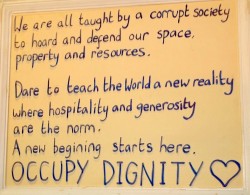 We are all taught by a corrupt society
to hoard and defend our space,
property and resources.
Dare to teach the World a new reality
where hospitality and generosity
are the norm.
A new begining starts here.
OCCUPY DIGNITY